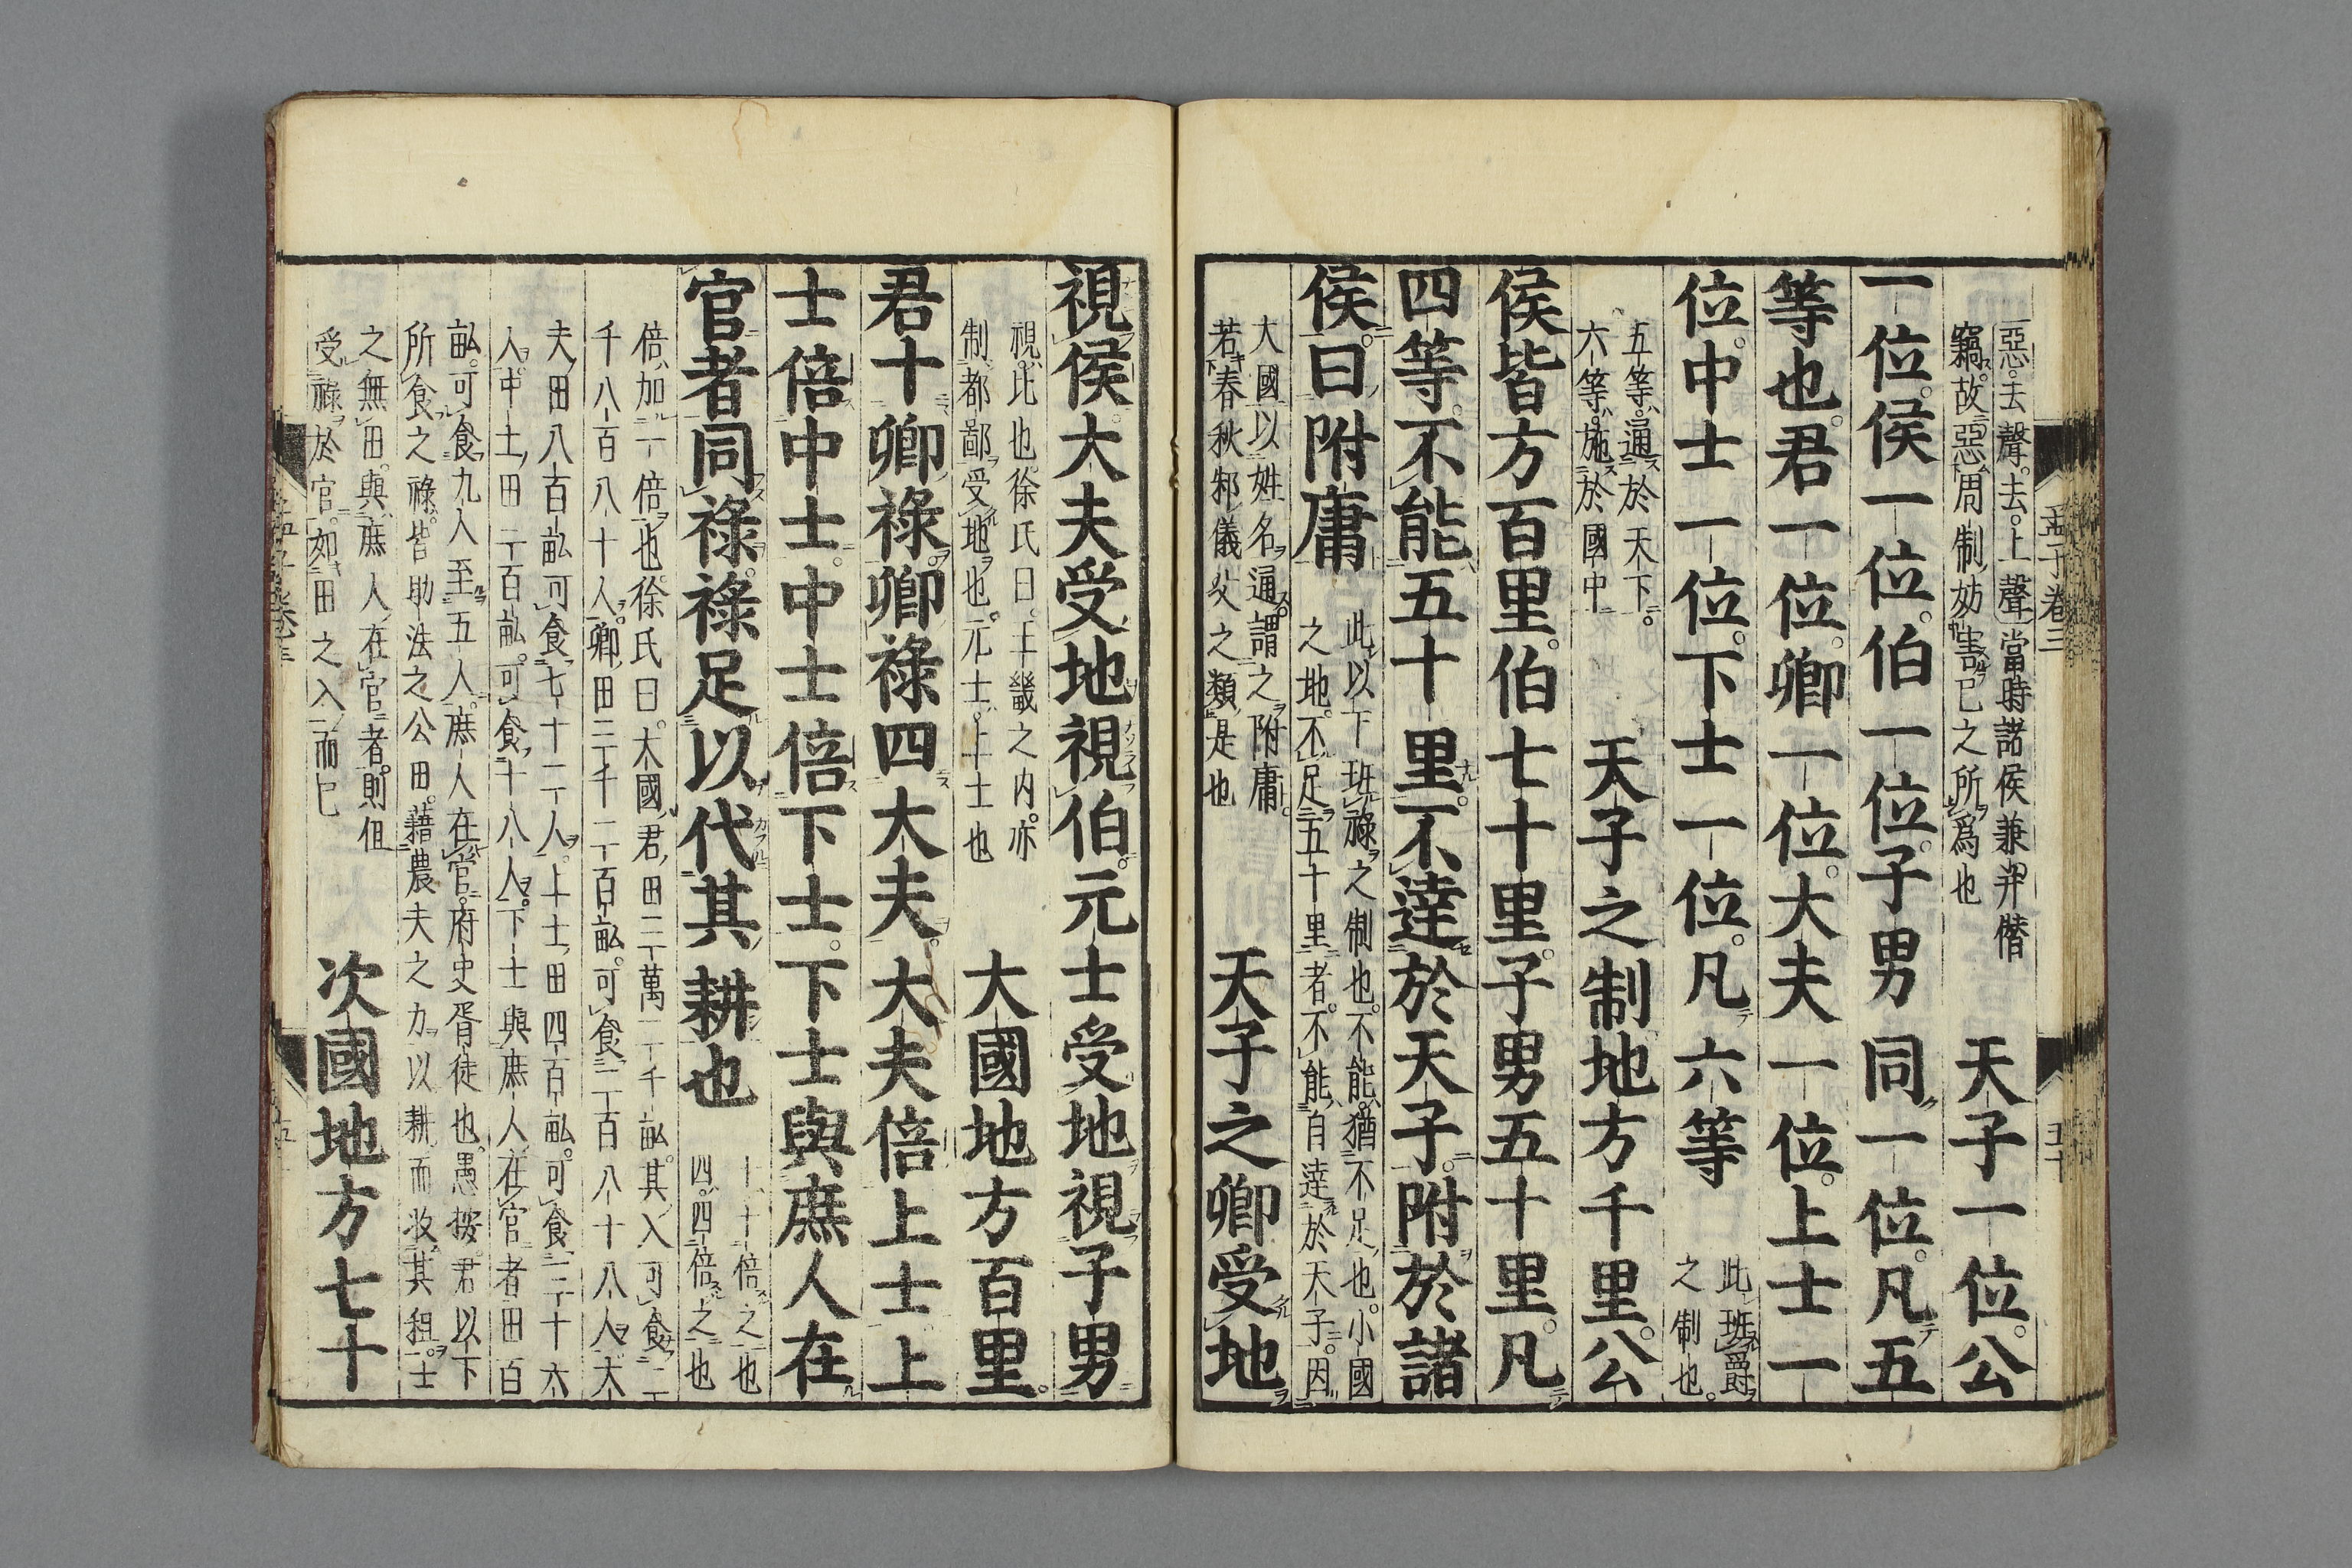 孟子卷三
惡去聲。去上聲當時諸侯兼幷僭
竊。故惡周制妨害己之所爲也
天子一位。公
一位。侯一位。伯一位。子男同一位。凡五
等也。君一位。卿一位。大夫一位。上士一
位。中士一位。下士一位。凡六等
此班爵
之制也。
五等。通於天下。
六等。施於國中
天子之制地方千里。公
侯皆方百里。伯七十里。子男五十里。凡
四等。不能五十里。不達於天子。附於諸
侯。曰附庸
此以下班祿之制也。不能。猶不足也。小國
之地。不足五十里者。不能自達於天子。因
大國以姓名通。謂之附庸。
若春秋邾儀父之類是也
天子之卿受地
視侯。大夫受地視伯。元士受地視子男
視比也。徐氏曰。王畿之内。亦
制都鄙受地也。元士。上士也
大國地方百里。
君十卿祿。卿祿四大夫。大夫倍上士。上
士倍中士。中士倍下士。下士與庶人在
官者同祿。祿足以代其耕也
十十倍之也
四。四倍之也
倍。加一倍也。徐氏曰。大國君田三萬二千畝。其入可食二
千八百八十人。卿田三千二百畝。可食二百八十八人。大
夫田八百畝。可食七十二人。上士田四百畝。可食三十六
人。中士田二百畝。可食十八人。下士與庶人在官者田百
畝。可食九人至五人。庶人在官。府史胥徒也。愚按。君以下
所食之祿。皆助法之公田。藉農夫之力以耕而收其租。士
之無田。與庶人在官者。則但
受祿於官。如田之入而已
次國地方七十